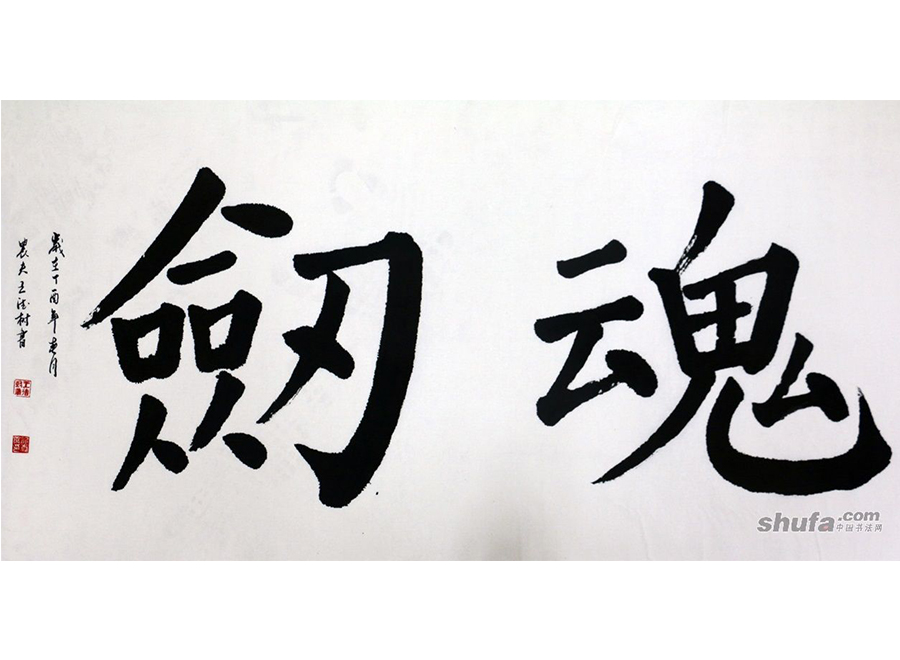 魂劒
歲在丁酉年春月
農夫王法樹書
shufa.com
中国书法网